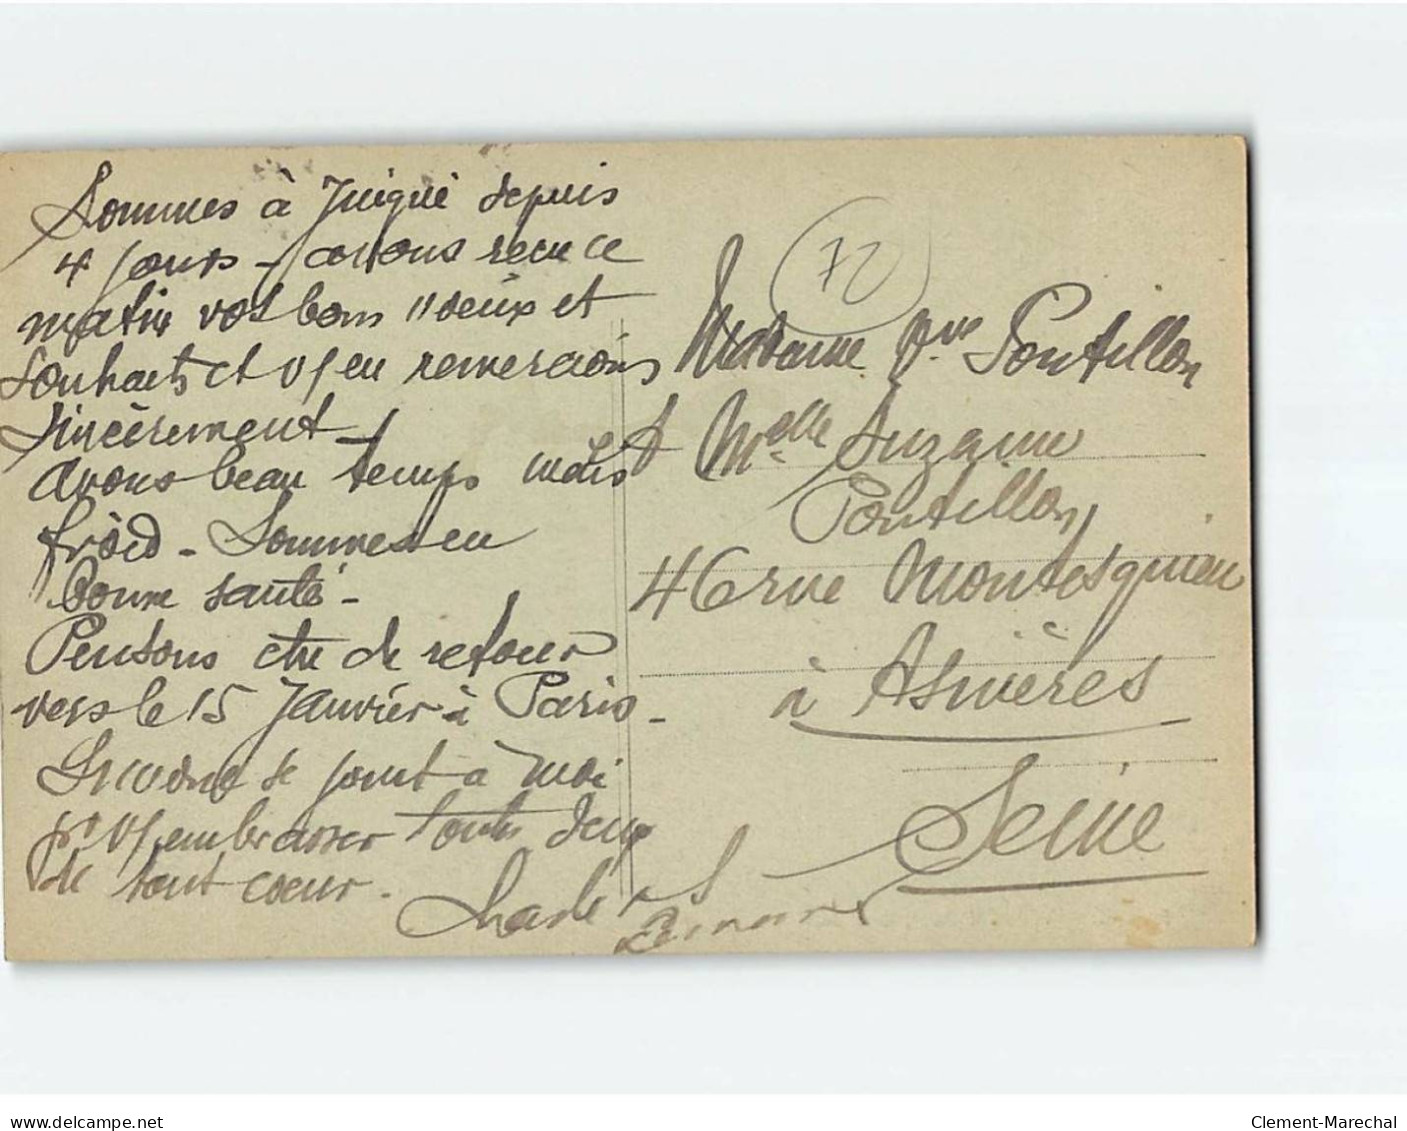 Sommes à Juigné depuis
4 jours - avons reçu ce
matin vos bons voeux et
souhaits et vs en remercions
sincèrement
avons beau temps mais
froid - Sommes en
bonne santé -
Pensons être de retour
vers le 15 Janvier à Paris -
se joint à moi
pr vs embrasser toutes deux
de tout coeur -
Charles
72
Madame Vve Pontillon
& Melle Suzanne
Pontillon
46 rue Montesquieu
à Asnières
Seine
www.delcampe.net
Clement-Marechal